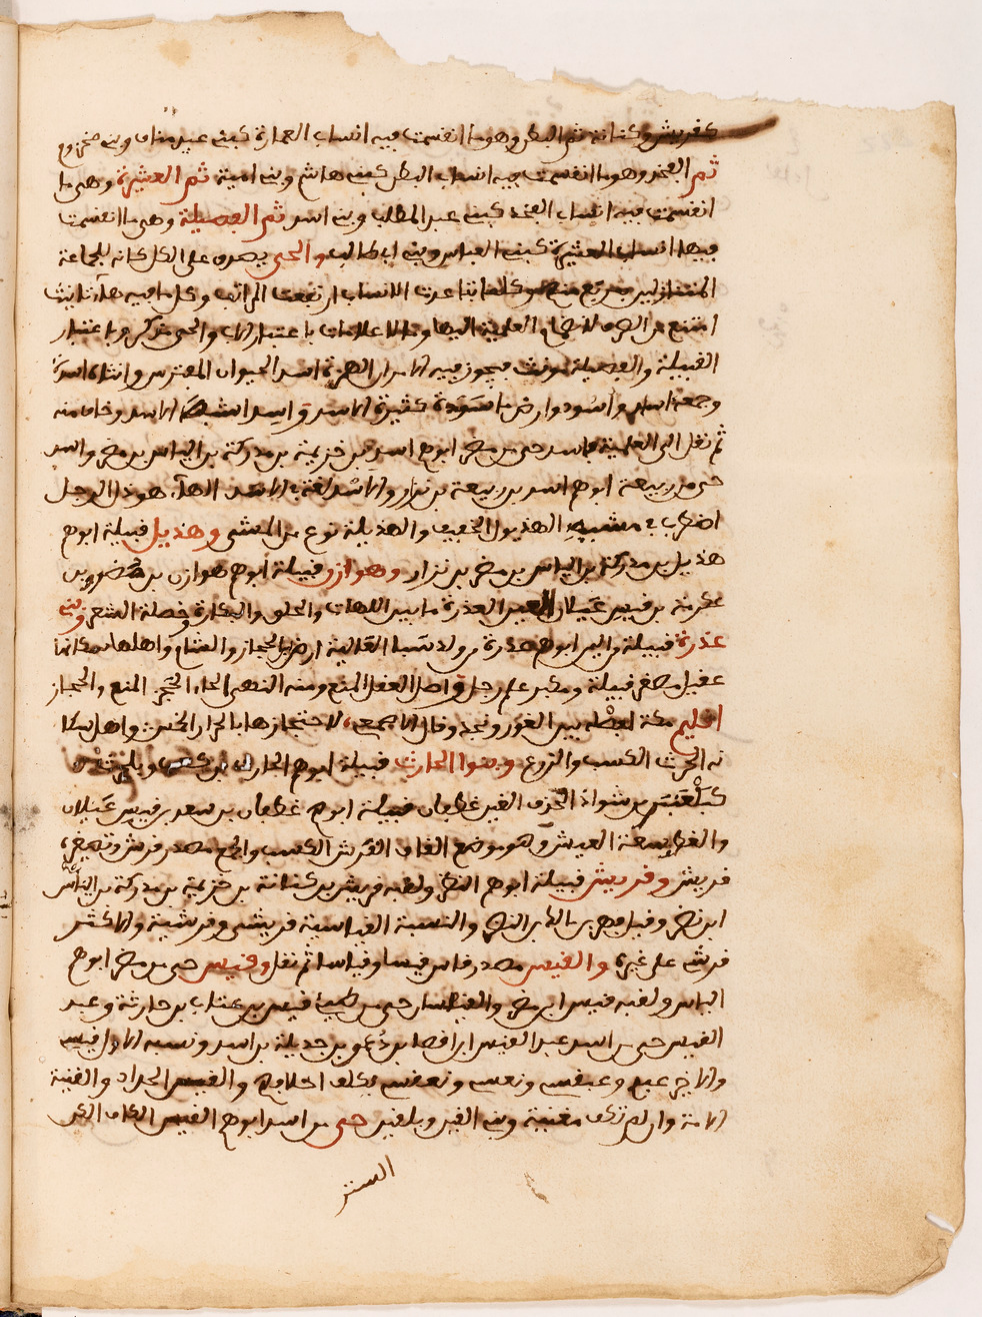 كقريش وكنانة ثم البطن وهو ما انقسمت فيه انساب العمارة كبني عبد مناف وبني مخزوم
ثم الفخذ وهو ما انقسمت فيه انساب البطن كبني هاشم وبني امية ثم العشيرة وهي ما
انقسمت فيه انساب الفخذ كبني عبد المطلب وبني اسد ثم الفصيلة وهي ما انقسمت
فيها انساب العشيرة كبني العباس وبني ابي طالب والحي يصدق على الكل كانه للجماعة
المتنازلين بمربع منهم وكلما تباعدت الانساب ارتفعت المراتب وكل ما فيه هاء تانيث
امتنع من الصرف لانضمام العلمية اليها وما لا علامة باعتبار الاب والحي مذكر وباعتبار
القبيلة والفصيلة مونث فيجوز فيه الامران الهمزة اسد الحيوان المفترس وانثاه اسدة
وجمعه اسد واسود وارض ماسدة كثيرة الاسد واسد اشبه الاسد وخاف منه
ثم نقل الى العلمية فاسد حي من مضر ابوهم اسد بن خزيمة بن مدركة بن الياس بن مضر واسد
حي من ربيعة ابوهم اسد بن ربيعة بن نزار والاسد لغة في الازد الهاء هوذل الرجل
اضطرب في مشيه الهذلول الخفيف والهذيلة نوع من المشي وهذيل قبيلة ابوهم
هذيل بن مدركة بن الياس بن مضر بن نزار وهوازن قبيلة ابوهم هوازن بن منصور بن
عكرمة بن قيس عيلان العين العذرة ما بين اللهات والحلق والبكارة وخصلة الشعر وبني
عذرة قبيلة واليمن ابوهم عذرة من ولد سبا العالية ارض بالحجاز والشام واهلها مكانها
عقيل مصغر قبيلة ومكبر علم رجل واصل العقل المنع ومنه النهى الحاء الحجز المنع والحجاز
اقليم مكة لفصله بين الغور ونجد وقال الاصمعي لاحتجازها بالحرار الخمس واهل سكا
نه الحرث الكسب والزرع وبنوا الحارث قبيلة ابوهم الحارث بن كعب وبلحرث
كبلعنبر من شواذ الحذف الغين غطفان قبيلة ابوهم غطفان بن سعد بن قيس عيلان
والغطف سعة العيش وهو موضع القاف القرش الكسب والجمع مصدر قرش وتصغيره
قريش وقريش قبيلة ابوهم النضر ولقبه قريش بن كنانة بن خزيمة بن مدركة بن الياس
ابن مضر وقيل فهر بن مالك بن النضر والنسبة القياسية قريشي وقريشية والاكثر
قرشي على غيره والقيس مصدر قاس قيسا وقياسا ثم نقل وقيس حي من مضر ابوهم
الياس ولقبه قيس ابن مضر والقيسان حي من طيئ قيس بن عتاب بن حارثة وعبد
القيس حي من اسد عبد القيس ابن افصا بن دعمي بن جديلة بن اسد ونسبه الاول قيسي
والاخر عبدي وعبقسي وتعبس وتقيس تكلف اخلاقهم والقيس الحداد والقينة
الامة وان لم تكن مغنية وبني القين وبلقين حي من اسد ابوهم القين الكاف الكن
الستر